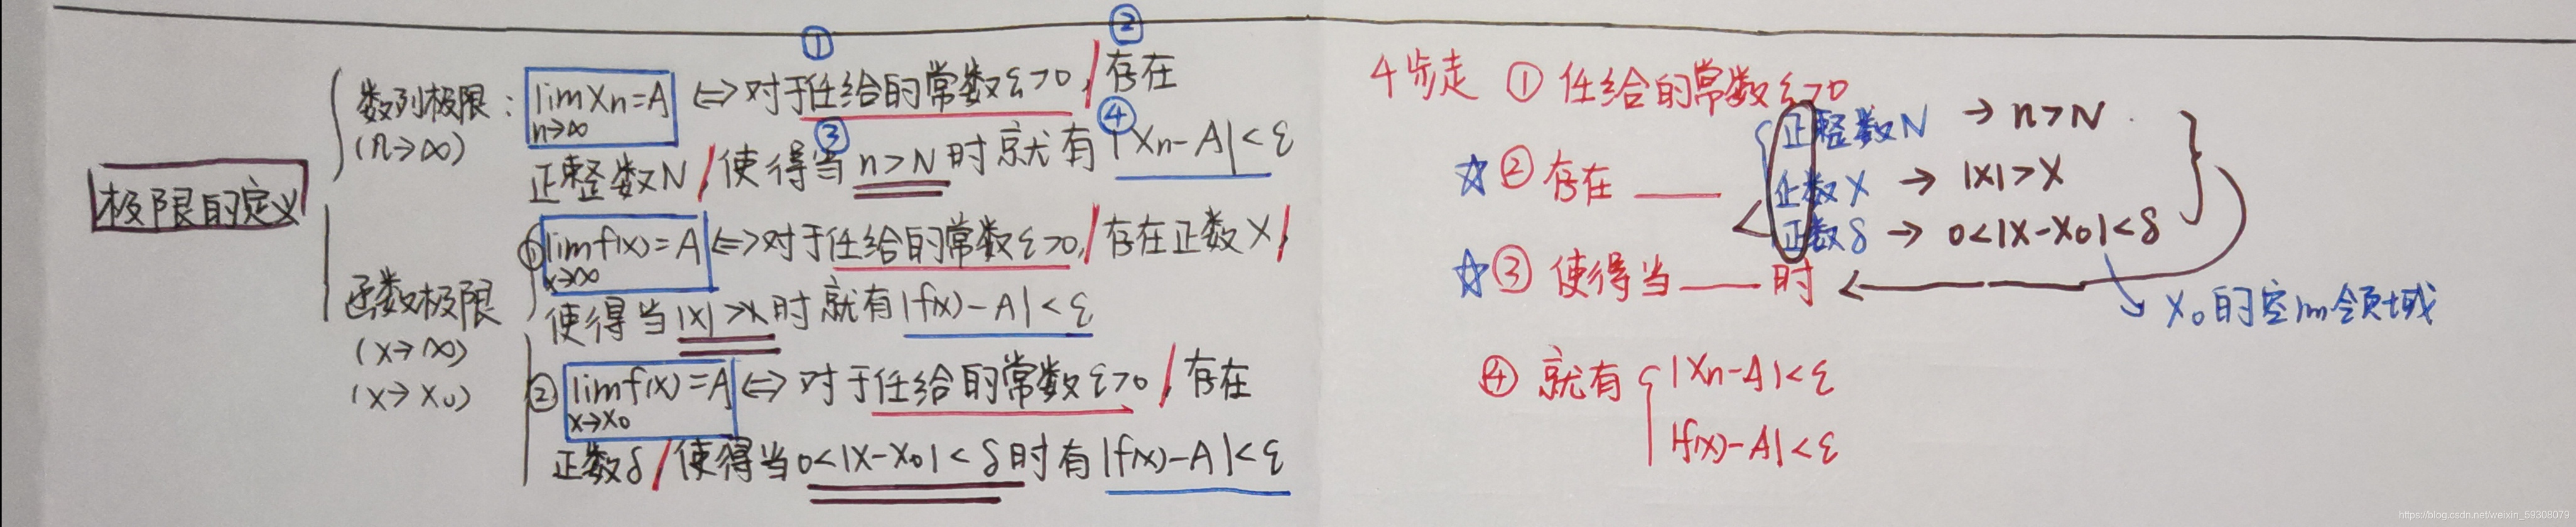 极限的定义
数列极限：
(n→∞)
lim Xn=A ⇔ 对于任给的常数ε>0, / 存在
n→∞
正整数N / 使得当 n>N 时就有 |Xn-A|<ε
①
②
③
④
函数极限
(x→∞)
(x→x₀)
① lim f(x)=A ⇔ 对于任给的常数ε>0, / 存在正数X /
x→∞
使得当 |x|>X 时就有 |f(x)-A|<ε
② lim f(x)=A ⇔ 对于任给的常数ε>0 / 存在
x→x₀
正数δ / 使得当 0<|x-x₀|<δ 时有 |f(x)-A|<ε
4步走 ① 任给的常数ε>0
☆ ② 存在 ___
正整数N → n>N
正数X → |x|>X
正数δ → 0<|x-x₀|<δ
☆ ③ 使得当 ___ 时
x₀的空心领域
④ 就有 { |Xn-A|<ε
|f(x)-A|<ε
https://blog.csdn.net/weixin_59308079